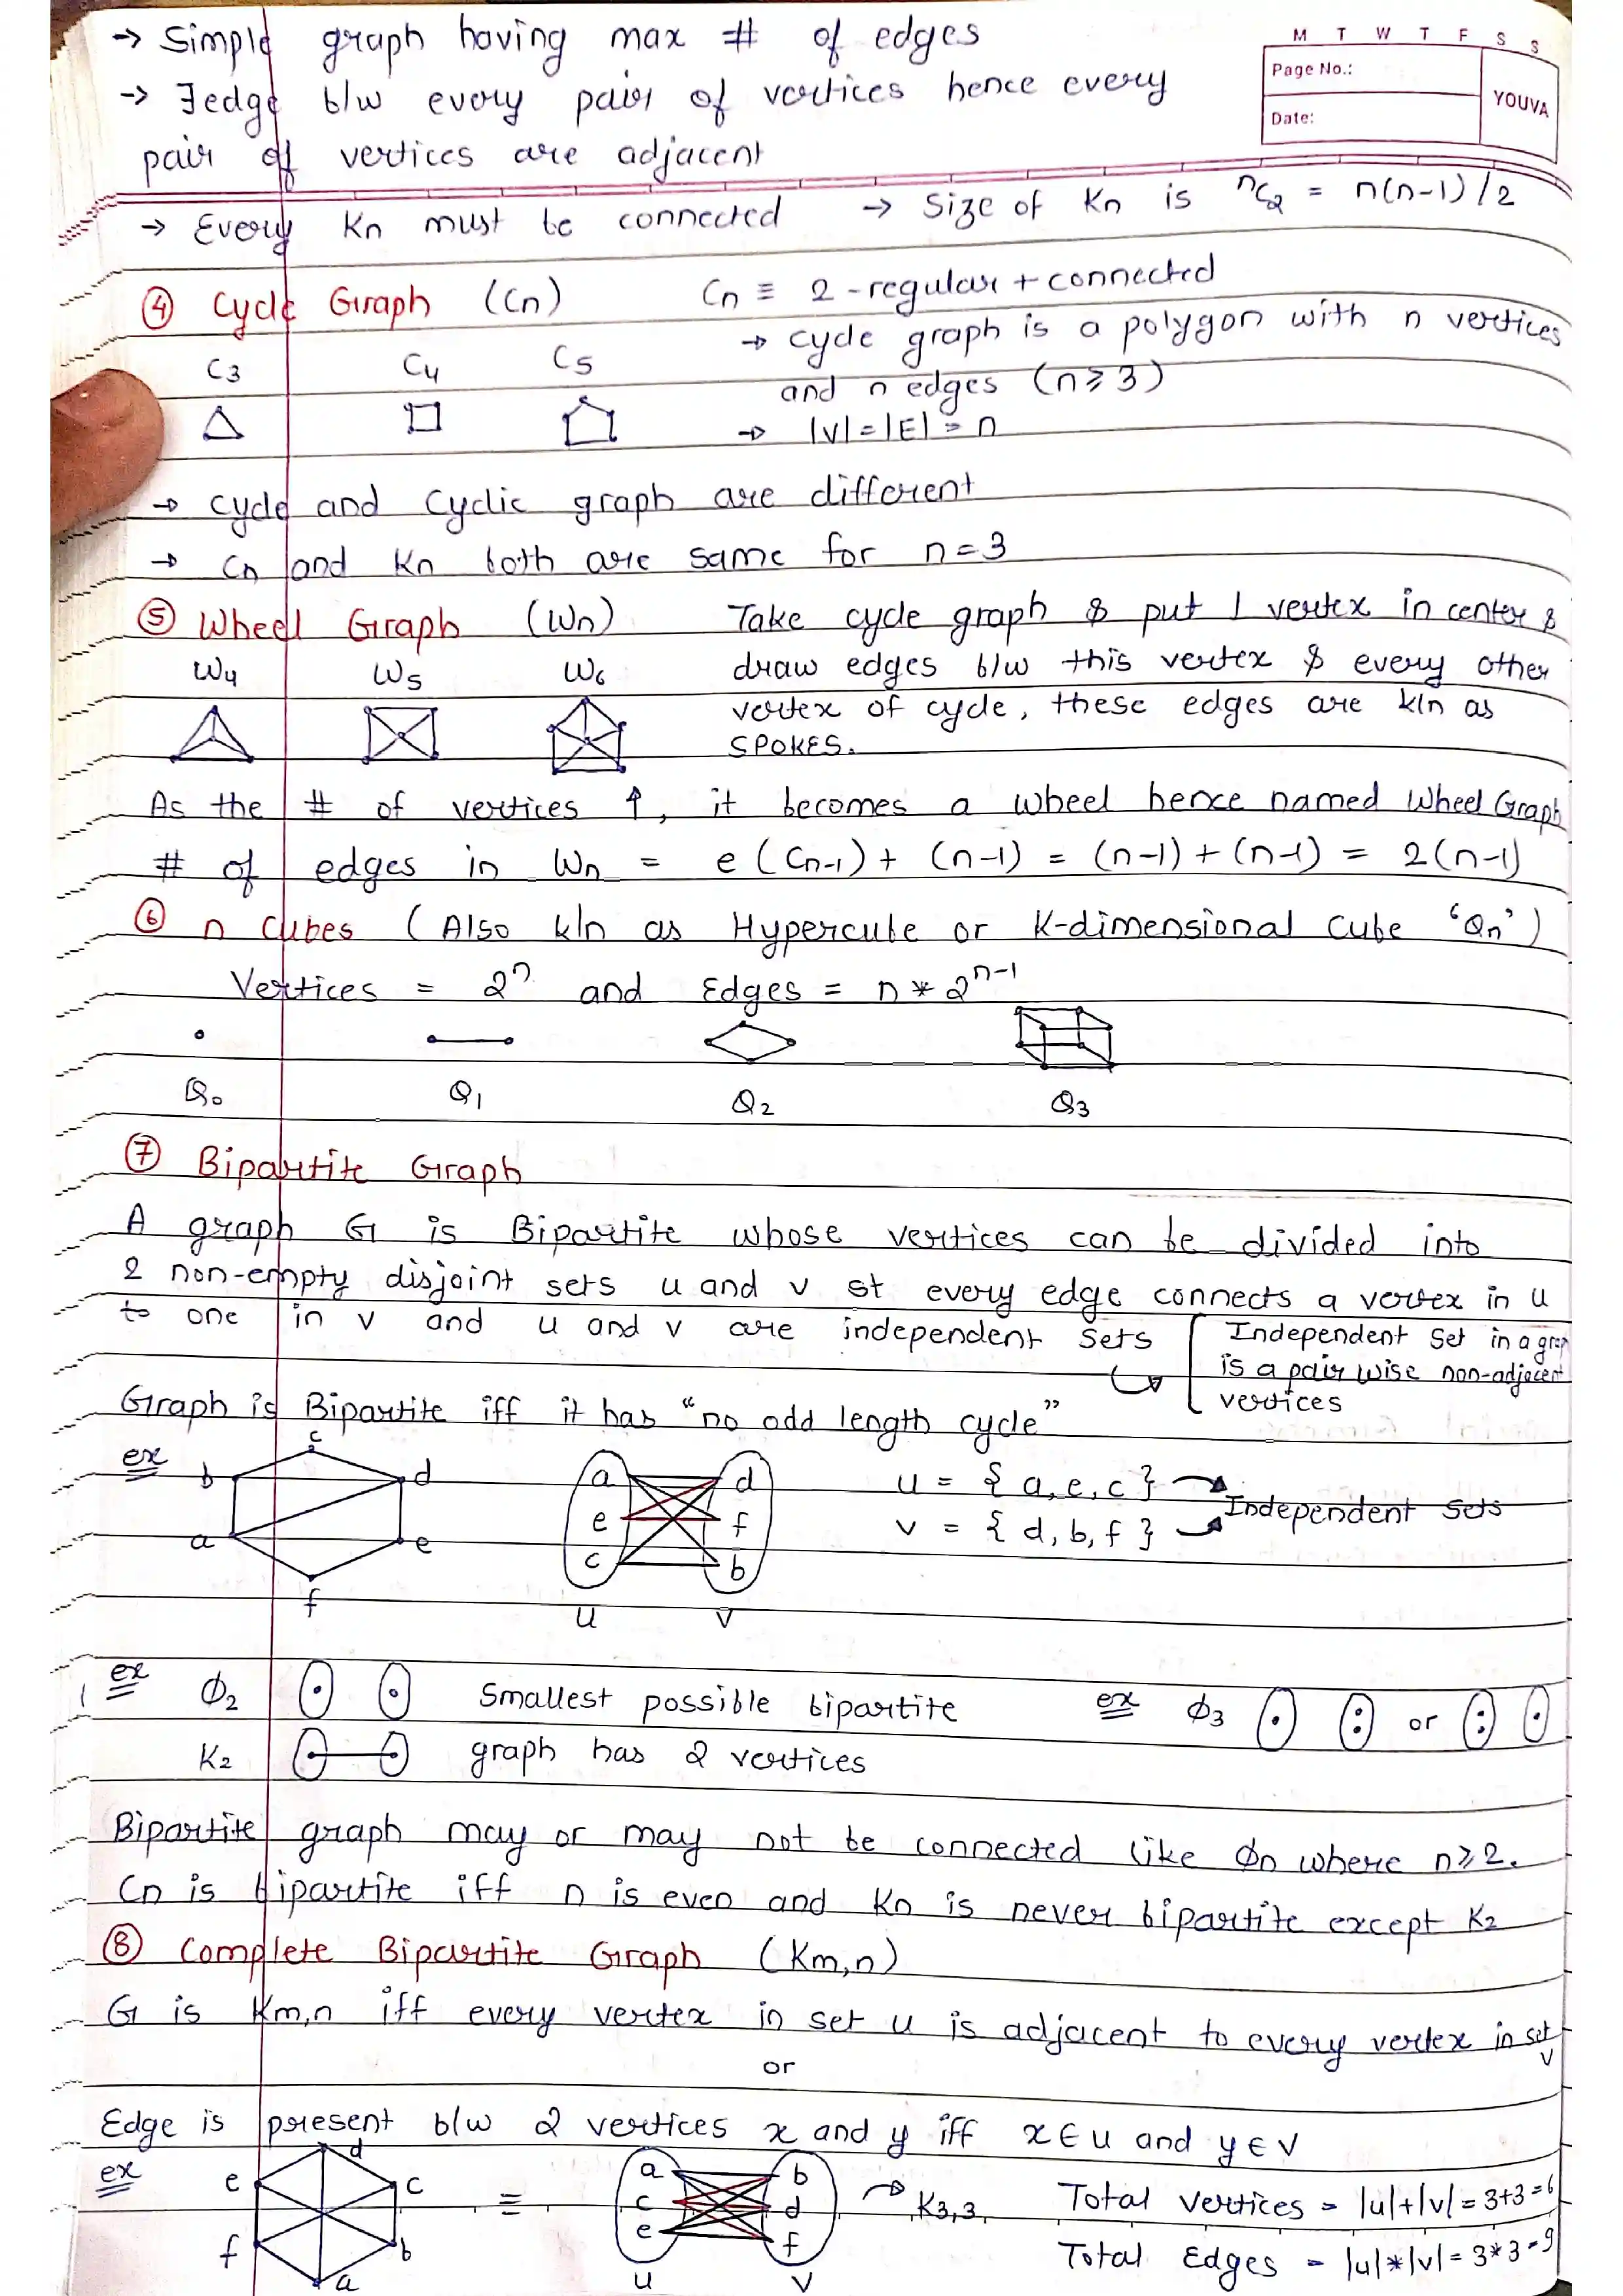 → Simple graph having max # of edges
→ ∃edge b/w every pair of vertices hence every
pair of vertices are adjacent
M T W T F S S
Page No.:
Date:
YOUVA
→ Every Kn must be connected → Size of Kn is ⁿC₂ = n(n-1)/2
④ Cycle Graph (Cn) Cn ≡ 2-regular + connected
→ cycle graph is a polygon with n vertices
and n edges (n⩾3)
C3 C4 C5
→ |V| = |E| = n
→ cycle and cyclic graph are different
→ Cn and Kn both are same for n=3
⑤ Wheel Graph (Wn) Take cycle graph & put 1 vertex in center &
draw edges b/w this vertex & every other
vertex of cycle, these edges are k/n as
SPOKES.
W4 W5 W6
As the # of vertices ↑, it becomes a wheel hence named Wheel Graph
# of edges in Wn = e(Cn-1) + (n-1) = (n-1) + (n-1) = 2(n-1)
⑥ n Cubes (Also k/n as Hypercube or K-dimensional Cube 'Qn')
Vertices = 2ⁿ and Edges = n * 2ⁿ⁻¹
Q0 Q1 Q2 Q3
⑦ Bipartite Graph
A graph G is Bipartite whose vertices can be divided into
2 non-empty disjoint sets u and v st every edge connects a vertex in u
to one in v and u and v are independent sets
Independent Set in a grap
is a pair wise non-adjacent
vertices
Graph is Bipartite iff it has "no odd length cycle"
ex b c d a e f
a e c d f b
u v
u = {a, e, c}
v = {d, b, f}
Independent Sets
ex Φ2 Smallest possible bipartite
K2 graph has 2 vertices
ex Φ3 or
Bipartite graph may or may not be connected like Φn where n⩾2.
Cn is bipartite iff n is even and Kn is never bipartite except K2
⑧ Complete Bipartite Graph (Km,n)
G is Km,n iff every vertex in set u is adjacent to every vertex in set
v
or
Edge is present b/w 2 vertices x and y iff x∈u and y∈v
ex e d c f b a = a c e b d f
u v
→ K3,3
Total vertices = |u|+|v| = 3+3 = 6
Total Edges = |u|*|v| = 3*3 = 9